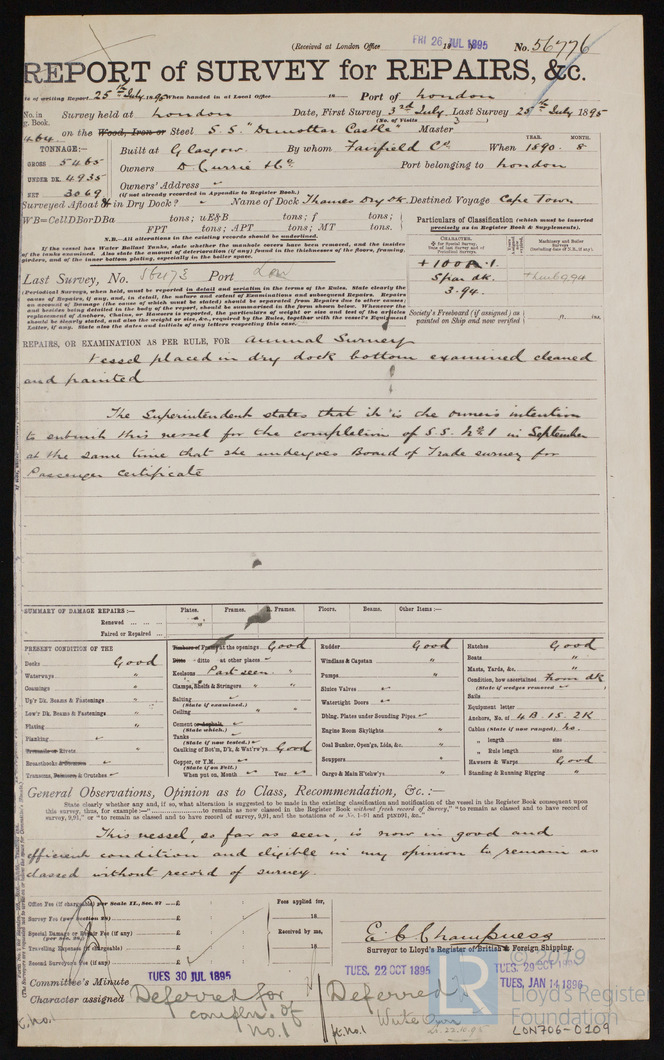 (Received at London Office FRI 26 JUL 1895 No. 56776
REPORT of SURVEY for REPAIRS, &c.
of writing Report 25th July 1895 When handed in at Local Office 18 Port of London
No. in Survey held at London Date, First Survey 3rd July Last Survey 25th July 1895
g. Book. (No. of Visits 3)
464 on the Wood, Iron or Steel S. S. "Dunottar Castle" Master
TONNAGE:— YEAR. MONTH.
GROSS 5465 Built at Glasgow By whom Fairfield Co. When 1890. 8
UNDER DK. 4935 Owners D. Currie & Co. Port belonging to London
NET 3069 Owners' Address
(if not already recorded in Appendix to Register Book.)
Surveyed Afloat or in Dry Dock? Name of Dock Thames Dry Dk Destined Voyage Cape Town
WB=CellDBorDBa tons; uE&B tons; f tons;
FPT tons; APT tons; MT tons.
N.B.—All alterations in the existing records should be underlined.
If the vessel has Water Ballast Tanks, state whether the manhole covers have been removed, and the insides
of the tanks examined. Also state the amount of deterioration (if any) found in the thicknesses of the floors, framing,
girders, and of the inner bottom plating, especially in the boiler space.
Particulars of Classification (which must be inserted
precisely as in Register Book & Supplements).
CHARACTER. Machinery and Boiler
Surveys
+ 100A.1.
Spar dk.
3.94.
Last Survey, No. 56473 Port Lon
(Periodical Surveys, when held, must be reported in detail and seriatim in the terms of the Rules. State clearly the
causes of Repairs, if any, and, in detail, the nature and extent of Examinations and subsequent Repairs. Repairs
on account of Damage (the cause of which must be stated) should be separated from Repairs due to other causes;
and besides being detailed in the body of the report, should be summarized in the form shown below. Whenever the
replacement of Anchors, Chains, or Hawsers is reported, the particulars of weight or size and test of the articles
should be clearly stated, and also the weight or size, &c., required by the Rules, together with the vessel's Equipment
Letter, if any. State also the dates and initials of any letters respecting this case.
Society's Freeboard (if assigned) as
painted on Ship and now verified ft. ins.
REPAIRS, OR EXAMINATION AS PER RULE, FOR annual Survey
Vessel placed in dry dock bottom examined cleaned
and painted
The Superintendent states that it is the owners intention
to submit this vessel for the completion of S.S. No. 1 in September
at the same time that she undergoes Board of Trade survey for
Passenger Certificate
SUMMARY OF DAMAGE REPAIRS:— Plates. Frames. R. Frames. Floors. Beams. Other Items:—
Renewed
Faired or Repaired
PRESENT CONDITION OF THE
Decks Good
Waterways "
Coamings "
Up'r Dk. Beams & Fastenings "
Low'r Dk. Beams & Fastenings "
Plating "
Planking
Treenails or Rivets
Breasthooks & Stemson
Transoms, Pointers & Crutches
Timbers of Frame at the openings Good
Ditto ditto at other places
Keelsons Part seen. "
Clamps, Shelfs & Stringers "
Salting
(State if examined.)
Ceiling
Cement or Asphalt
(State which.)
Tanks
(State if now tested.)
Caulking of Bot'm, D'k, & Wat'rw'ys Good
Copper, or Y.M.
(State if on Felt.)
When put on, Month Year
Rudder Good
Windlass & Capstan "
Pumps "
Sluice Valves
Watertight Doors
Dblng. Plates under Sounding Pipes
Engine Room Skylights "
Coal Bunker, Open'gs, Lids, &c. "
Scuppers "
Cargo & Main H'tchw'ys "
Hatches Good
Boats "
Masts, Yards, &c. "
Condition, how ascertained from dk
(State if wedges removed)
Sails
Equipment letter
Anchors, No. of 4B. 1S. 2K
Cables (State if now ranged) No.
" length size
" Rule length size
Hawsers & Warps Good
Standing & Running Rigging "
General Observations, Opinion as to Class, Recommendation, &c.:—
State clearly whether any, if so, what alteration is suggested to be made in the existing classification and notification of the vessel in the Register Book consequent upon
this survey, thus, for example— to remain as now classed in Register Book without fresh record of Survey," "to remain as classed and to have record of
survey, 9,91," or "to remain as classed and to have record of survey, 9,91, and the notations of ss No. 1-91 and ptND91, &c."
This vessel, so far as seen, is now in good and
efficient condition and eligible in my opinion to remain as
classed without record of survey.
Office Fee (if chargeable) per Scale II., Sec. 27 £ Fees applied for,
Survey Fee (per Section 28) £ 18
Special Damage or Repair Fee (if any) £ Received by me,
Travelling Expenses (if chargeable) £ 18
Second Surveyor's Fee (if any) £
E. C. Champness
Surveyor to Lloyd's Register of British & Foreign Shipping.
Committee's Minute TUES 30 JUL 1895 TUES. 22 OCT 1895 TUES. 29 OCT 1895
TUES, JAN 14 1896
Character assigned Deferred for Deferred.
complen. of Write Owner
No. 1
© 2019
LR
Lloyd's Register
Foundation
LON706-0109